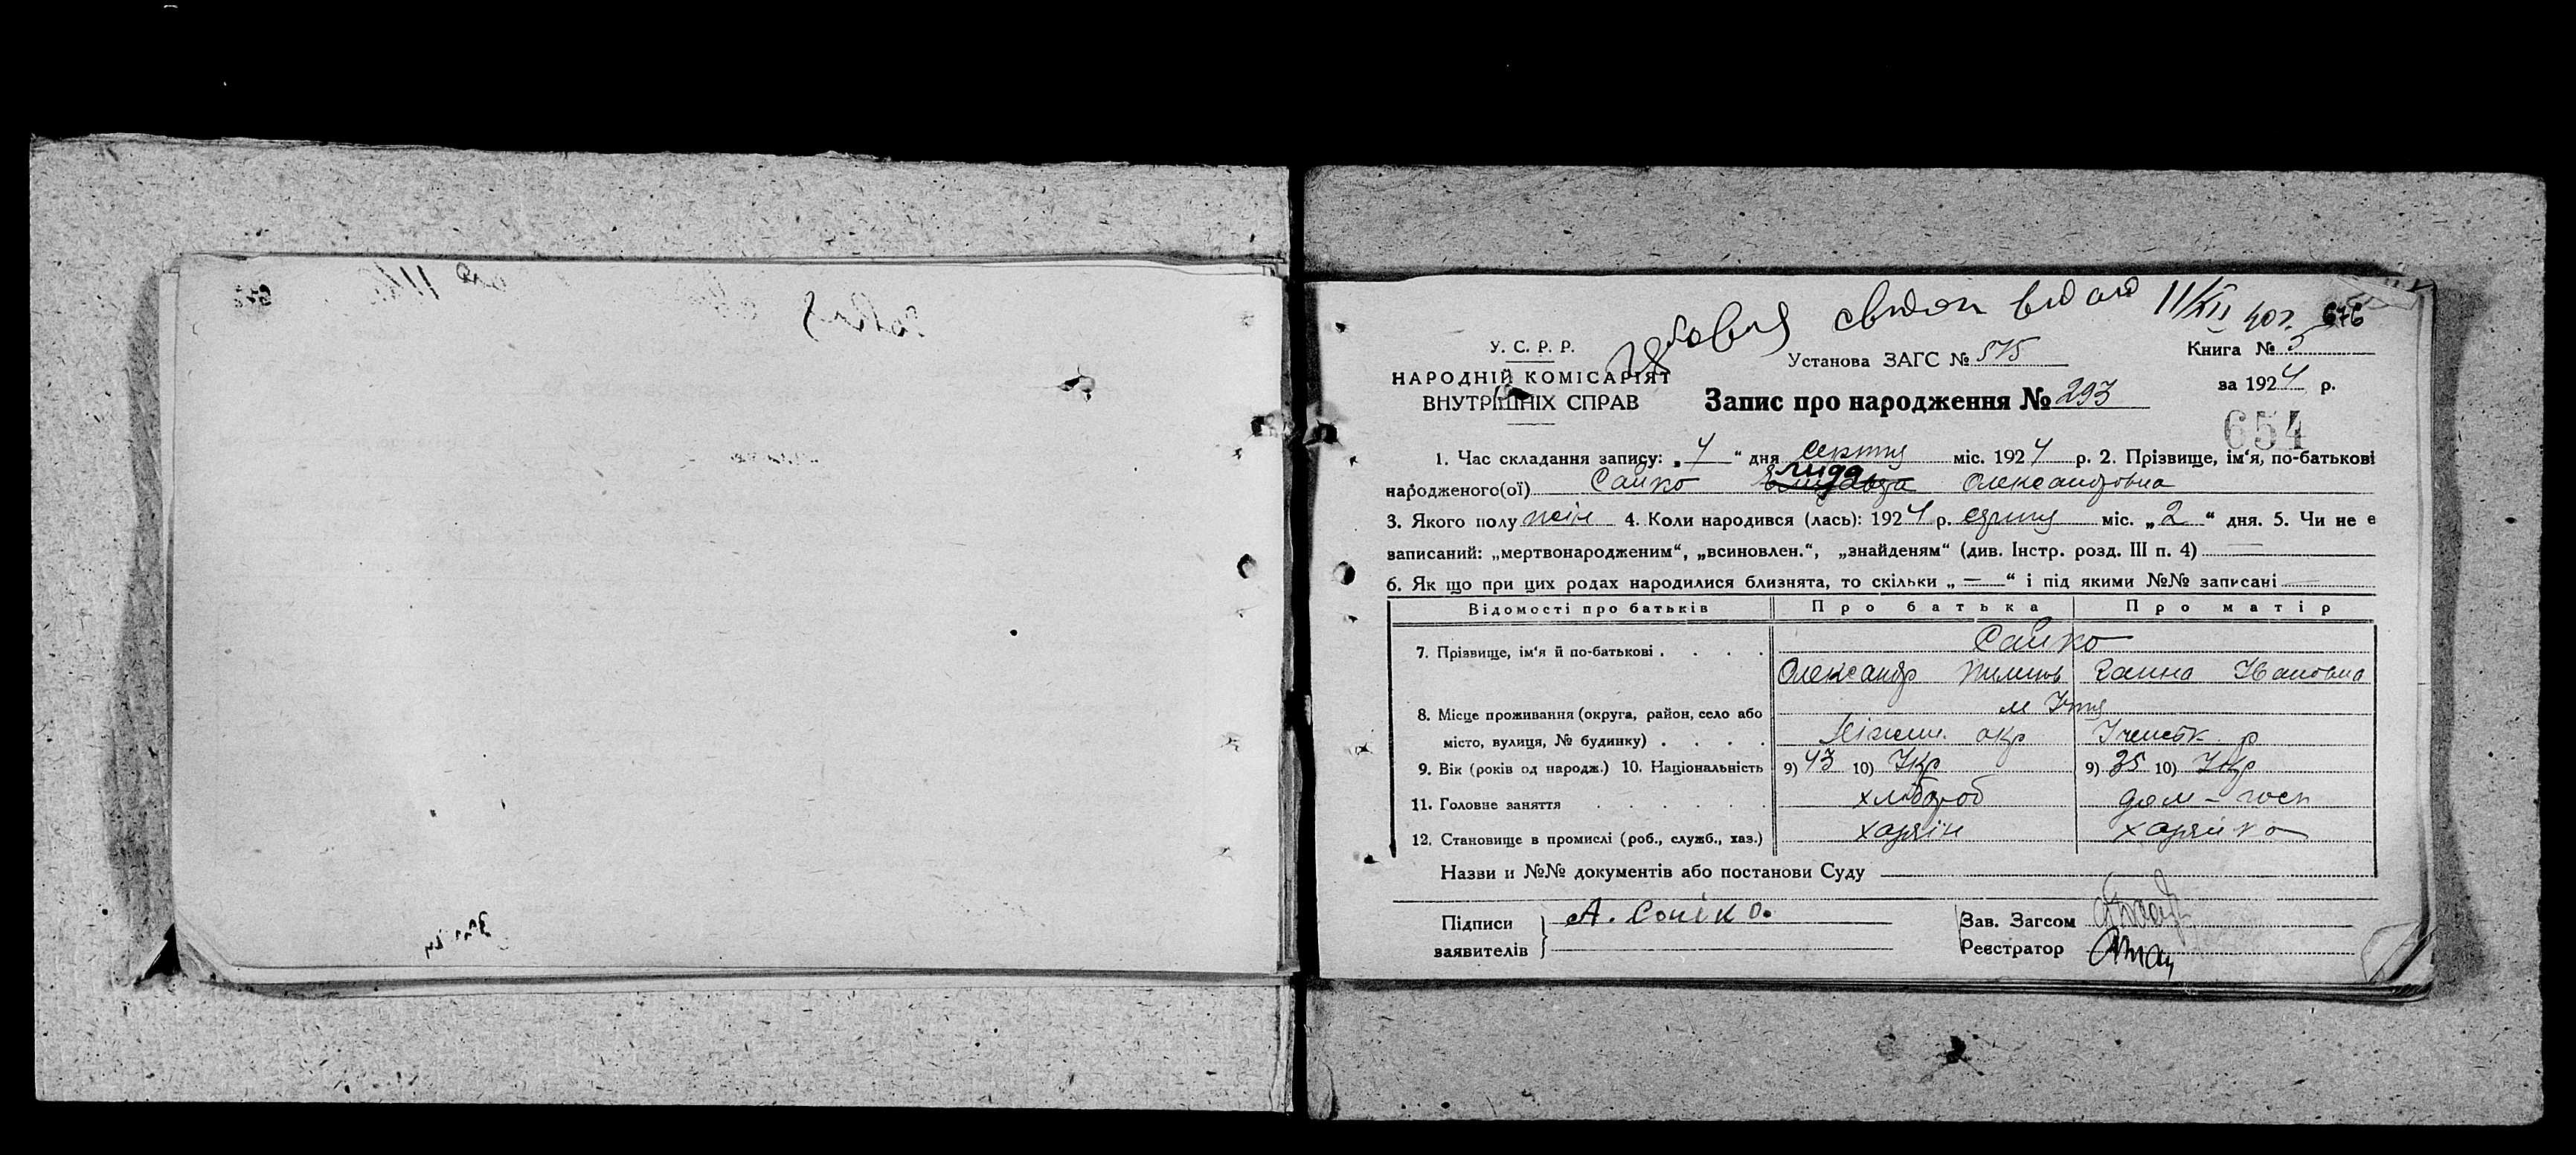 свидет видано 11/XII 40г. 676
У. С. Р. Р.
НАРОДНІЙ КОМІСАРІЯТ
ВНУТРІШНІХ СПРАВ
Установа ЗАГС № 575
Книга № 5
за 1924 р.
Запис про народження № 293
654
1. Час складання запису: „4“ дня серпня міс. 1924 р. 2. Прізвище, ім'я, по-батькові
Лида
народженого(ої) Сайко Елизавета Олександровна
3. Якого полу жін 4. Коли народився (лась): 1924 р. серпня міс. „2“ дня. 5. Чи не є
записаний: „мертвонародженим“, „всиновлен.“, „знайденям“ (див. Інстр. розд. III п. 4) —
6. Як що при цих родах народилися близнята, то скільки „—“ і під якими №№ записані —
Відомості про батьків Про батька Про матір
Сайко
7. Прізвище, ім'я й по-батькові . . . . Олександр Пилипов Ганна Ивановна
м Ічня
8. Місце проживання (округа, район, село або
місто, вулиця, № будинку) . . . . Ніжин. окр Іченськ. р
9. Вік (років од народж.) 10. Національність 9) 43 10) Укр 9) 35 10) Укр
11. Головне заняття . . . . . . хлібороб дом – госп
12. Становище в промислі (роб., служб., хаз.) хазяїн хазяйка
Назви и №№ документів або постанови Суду
Підписи
заявителів
А. Соніко.
Зав. Загсом
Реєстратор